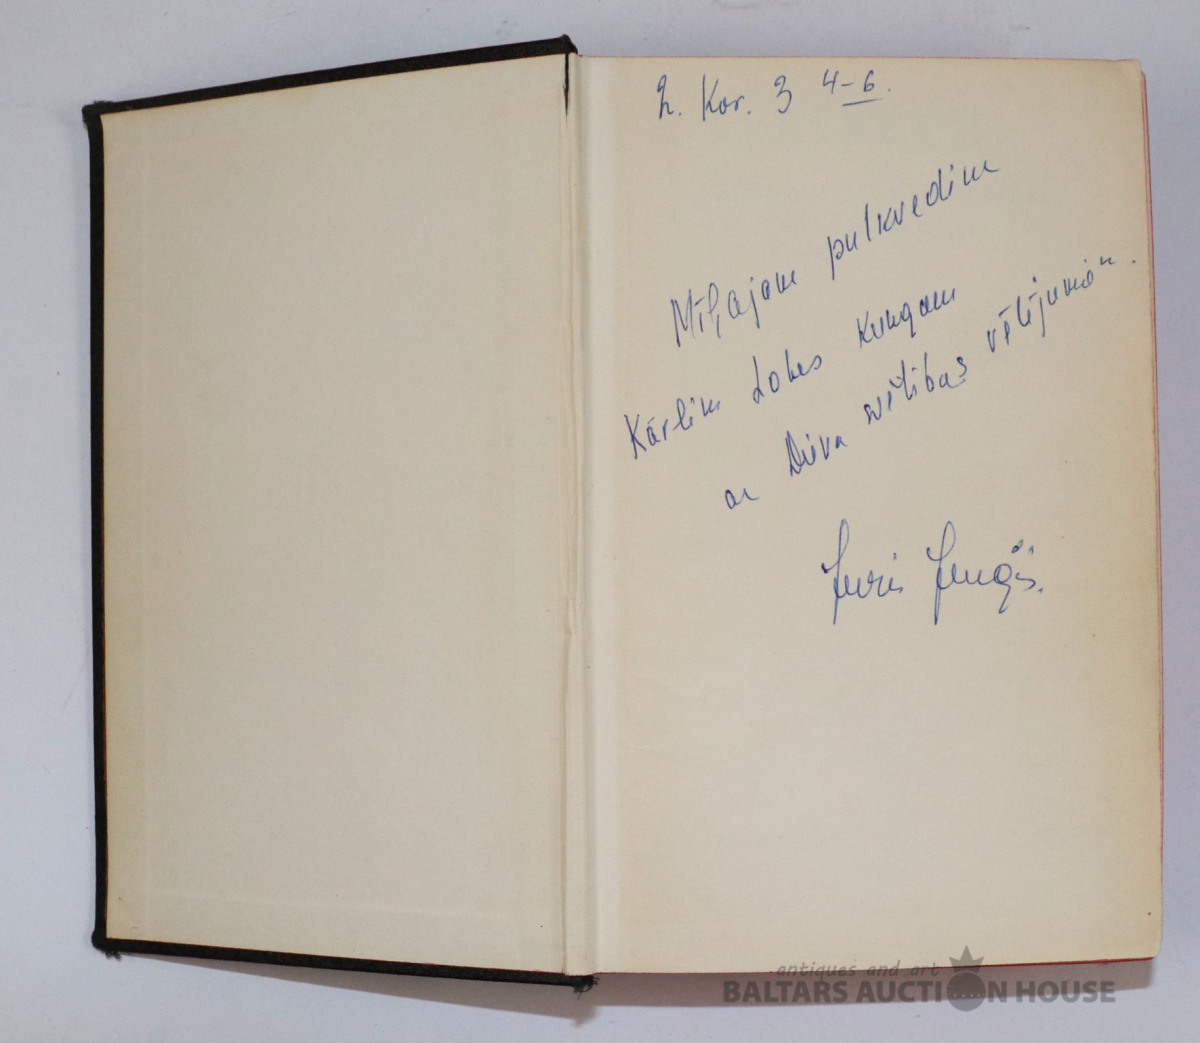 2. Kor. 3 4-6.
Mīļajam pulkvedim
Kārlim Lobes kungam
ar Dieva svētības vēlējumie".
Juris
antiques and art
BALTARS AUCTION HOUSE